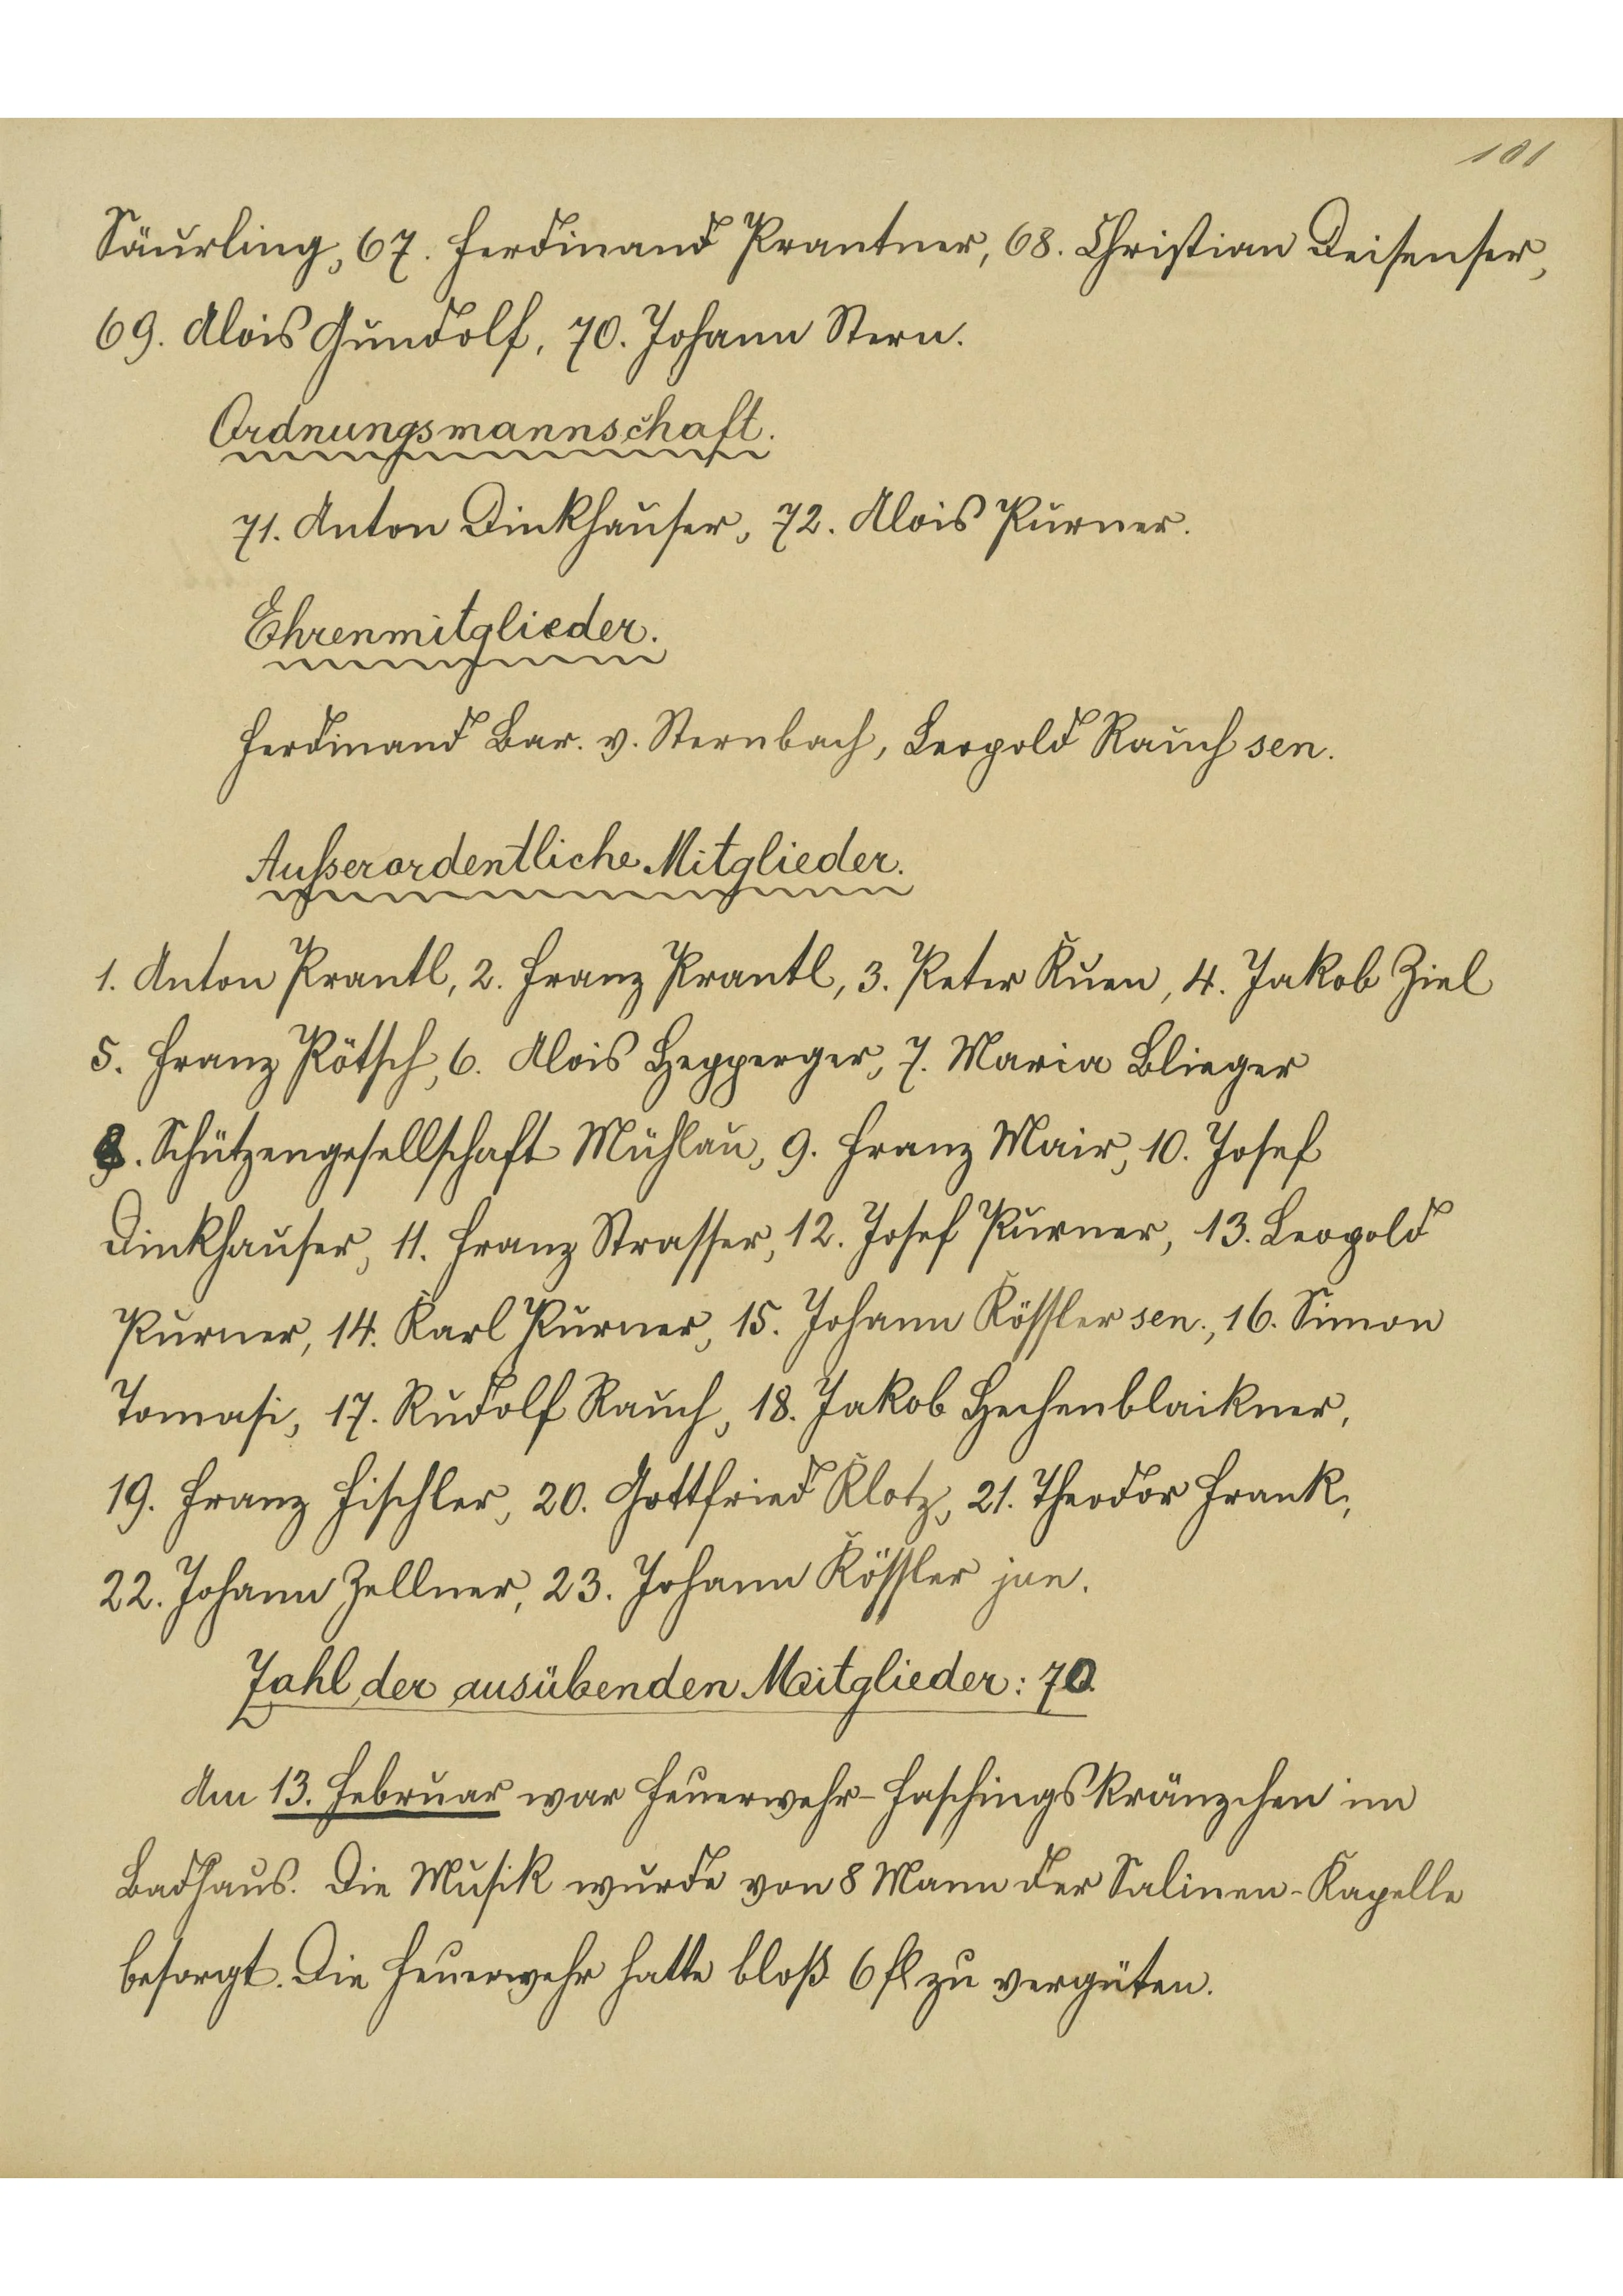 101
Säurling, 67. Ferdinand Prantner, 68. Christian Deisenser,
69. Alois Gundolf, 70. Johann Stern.
Ordnungsmannschaft.
71. Anton Dinkhauser, 72. Alois Purner.
Ehrenmitglieder.
Ferdinand Bar. v. Sternbach, Leopold Rauch sen.
Außerordentliche Mitglieder.
1. Anton Prantl, 2. Franz Prantl, 3. Peter Kuen, 4. Jakob Ziel
5. Franz Pötsch, 6. Alois Hepperger, 7. Maria Blieger
8. Schützengesellschaft Mühlau, 9. Franz Mair, 10. Josef
Dinkhauser, 11. Franz Strasser, 12. Josef Purner, 13. Leopold
Purner, 14. Karl Purner, 15. Johann Kössler sen., 16. Simon
Tomasi, 17. Rudolf Rauch, 18. Jakob Hechenblaikner,
19. Franz Fischler, 20. Gottfried Klotz, 21. Theodor Frank,
22. Johann Zellner, 23. Johann Kössler jun.
Zahl der ausübenden Mitglieder: 70.
Am 13. Februar war Feuerwehr-Faschingskränzchen im
Badhaus. Die Musik wurde von 8 Mann der Salinen-Kapelle
besorgt. Die Feuerwehr hatte bloß 6 fl zu vergüten.